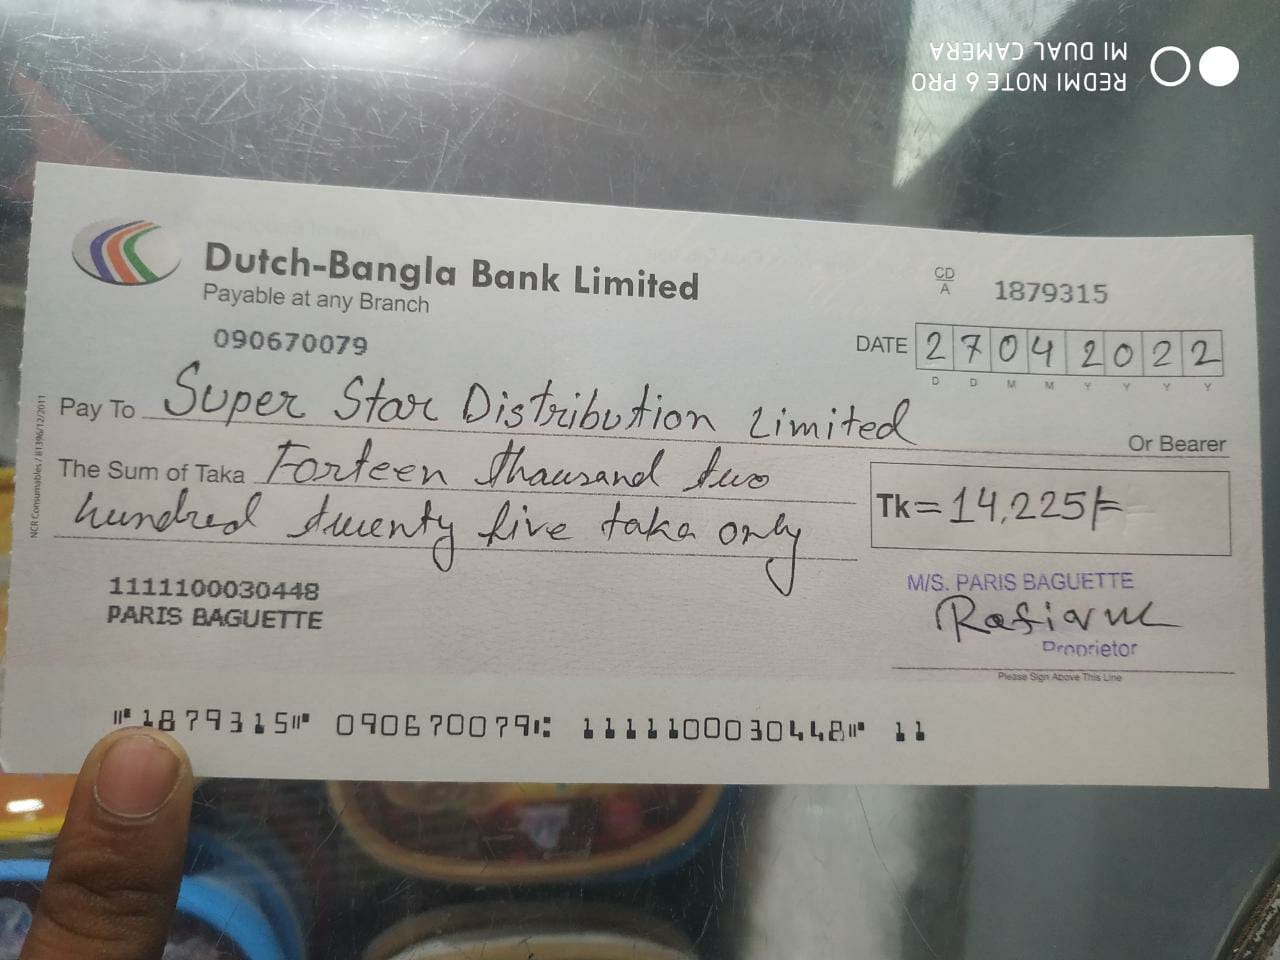 REDMI NOTE 6 PRO
MI DUAL CAMERA
Dutch-Bangla Bank Limited
Payable at any Branch
090670079
CD
A
1879315
DATE 27042022
D D M M Y Y Y Y
Pay To Super Star Distribution Limited
Or Bearer
The Sum of Taka Forteen thausand two
hundred twenty five taka only
Tk= 14,225/=
NCR Consumables / 81396/12/2011
1111100030448
PARIS BAGUETTE
M/S. PARIS BAGUETTE
Proprietor
Please Sign Above This Line
1879315 090670079 1111100030448 11